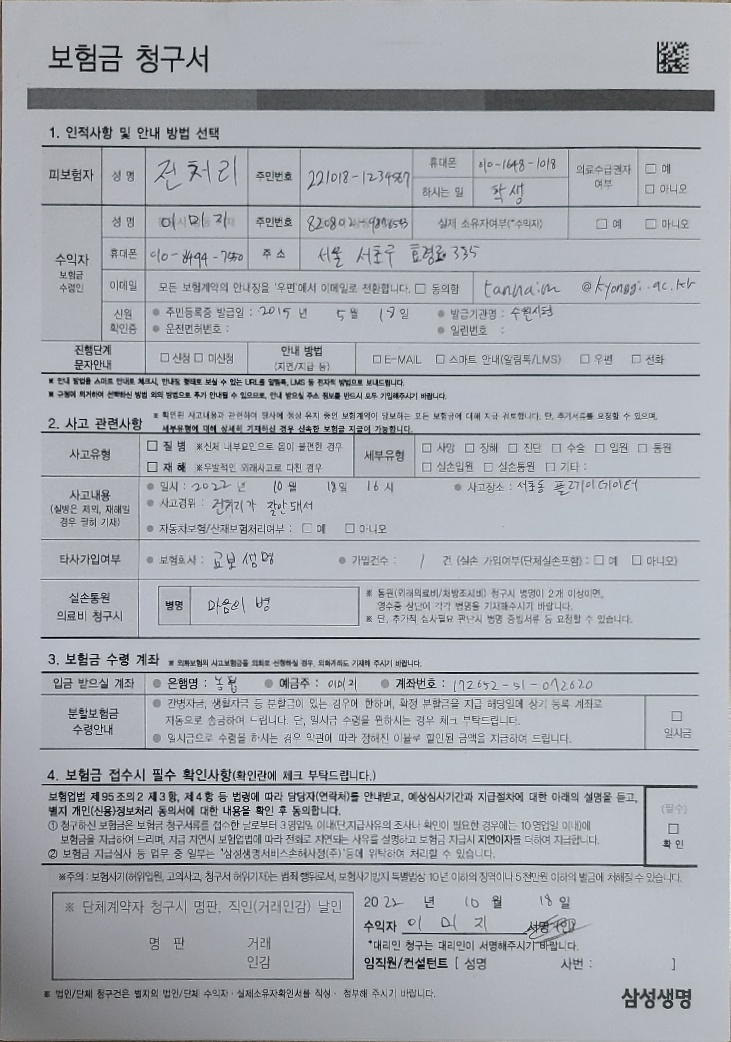 보험금 청구서
1. 인적사항 및 안내 방법 선택
피보험자 성 명 전처리 주민번호 221018-1234567 휴대폰 010-1648-1018 의료수급권자 여부 □ 예 □ 아니오
하시는 일 학생
수익자 보험금 수령인 성 명 이미지 주민번호 820802-9876543 실제 소유자여부(*수익자) □ 예 □ 아니오
휴대폰 010-8494-7550 주 소 서울 서초구 효령로 335
이메일 모든 보험계약의 안내장을 '우편'에서 이메일로 전환합니다. □ 동의함 @kyonggi.ac.kr
신원 확인증 ● 주민등록증 발급일 : 2015 년 5 월 18 일 ● 발급기관명 : 수원시청
● 운전면허번호 : ● 일련번호 :
진행단계 문자안내 □ 신청 □ 미신청 안내 방법 (지연/지급 등) □ E-MAIL □ 스마트 안내(알림톡/LMS) □ 우편 □ 전화
※ 안내 방법을 스마트 안내로 체크시, 안내장 형태로 보실 수 있는 URL을 알림톡, LMS 등 전자적 방법으로 보내드립니다.
※ 규정에 의거하여 선택하신 방법 외의 방법으로 추가 안내될 수 있으므로, 안내 받으실 주소 정보를 반드시 모두 기입해주시기 바랍니다.
2. 사고 관련사항 ※ 확인된 사고내용과 관련하여 당사에 정상 유지 중인 보험계약이 담보하는 모든 보험금에 대해 지급 검토합니다. 단, 추가서류를 요청할 수 있으며,
세부유형에 대해 상세히 기재하신 경우 신속한 보험금 지급이 가능합니다.
사고유형 □ 질 병 ※신체 내부요인으로 몸이 불편한 경우 세부유형 □ 사망 □ 장해 □ 진단 □ 수술 □ 입원 □ 통원
□ 재 해 ※우발적인 외래사고로 다친 경우 □ 실손입원 □ 실손통원 □ 기타 :
사고내용 (질병은 제외, 재해일 경우 필히 기재) ● 일시 : 2022 년 10 월 18일 16 시 ● 사고장소 : 서초동 플레이데이터
● 사고경위 : 전처리가 잘안돼서
● 자동차보험/산재보험처리여부 : □ 예 □ 아니오
타사가입여부 ● 보험회사 : 교보생명 ● 가입건수 : 1 건 (실손 가입여부(단체실손포함) : □ 예 □ 아니오)
실손통원 의료비 청구시 병명 마음의 병 ※ 통원(외래의료비/처방조제비) 청구시 병명이 2개 이상이면,
영수증 상단에 각각 병명을 기재해주시기 바랍니다.
※ 단, 추가적 심사필요 판단시 병명 증빙서류 등 요청할 수 있습니다.
3. 보험금 수령 계좌 ※ 외화보험의 사고보험금을 외화로 신청하실 경우, 외화계좌도 기재해 주시기 바랍니다.
입금 받으실 계좌 ● 은행명 : 농협 ● 예금주 : 이미지 ● 계좌번호 : 172652-51-072620
분할보험금 수령안내 ● 간병자금, 생활자금 등 분할금이 있는 경우에 한하며, 확정 분할금을 지급 해당일에 상기 등록 계좌로
자동으로 송금하여 드립니다. 단, 일시금 수령을 원하시는 경우 체크 부탁드립니다.
● 일시금으로 수령을 하시는 경우 약관에 따라 정해진 이율로 할인된 금액을 지급하여 드립니다.
□ 일시금
4. 보험금 접수시 필수 확인사항(확인란에 체크 부탁드립니다.)
보험업법 제95조의2 제3항, 제4항 등 법령에 따라 담당자(연락처)를 안내받고, 예상심사기간과 지급절차에 대한 아래의 설명을 듣고,
별지 개인(신용)정보처리 동의서에 대한 내용을 확인 후 동의합니다.
① 청구하신 보험금은 보험금 청구서류를 접수한 날로부터 3영업일 이내(단,지급사유의 조사나 확인이 필요한 경우에는 10영업일 이내)에
보험금을 지급하여 드리며, 지급 지연시 보험업법에 따라 전화로 지연되는 사유를 설명하고 보험금 지급시 지연이자를 더하여 지급합니다.
② 보험금 지급심사 등 업무 중 일부는 "삼성생명서비스손해사정(주)"등에 위탁하여 처리할 수 있습니다.
(필수)
□
확 인
※주의 : 보험사기(허위입원, 고의사고, 청구서 허위기재)는 범죄 행위로서, 보험사기방지 특별법상 10년 이하의 징역이나 5천만원 이하의 벌금에 처해질 수 있습니다.
※ 단체계약자 청구시 명판, 직인(거래인감) 날인
명 판 거래
인감
2022 년 10 월 18 일
수익자 이 미 지
*대리인 청구는 대리인이 서명해주시기 바랍니다.
임직원/컨설턴트 [ 성명 사번 : ]
※ 법인/단체 청구건은 별지의 법인/단체 수익자 · 실제소유자확인서를 작성 · 첨부해 주시기 바랍니다.
삼성생명